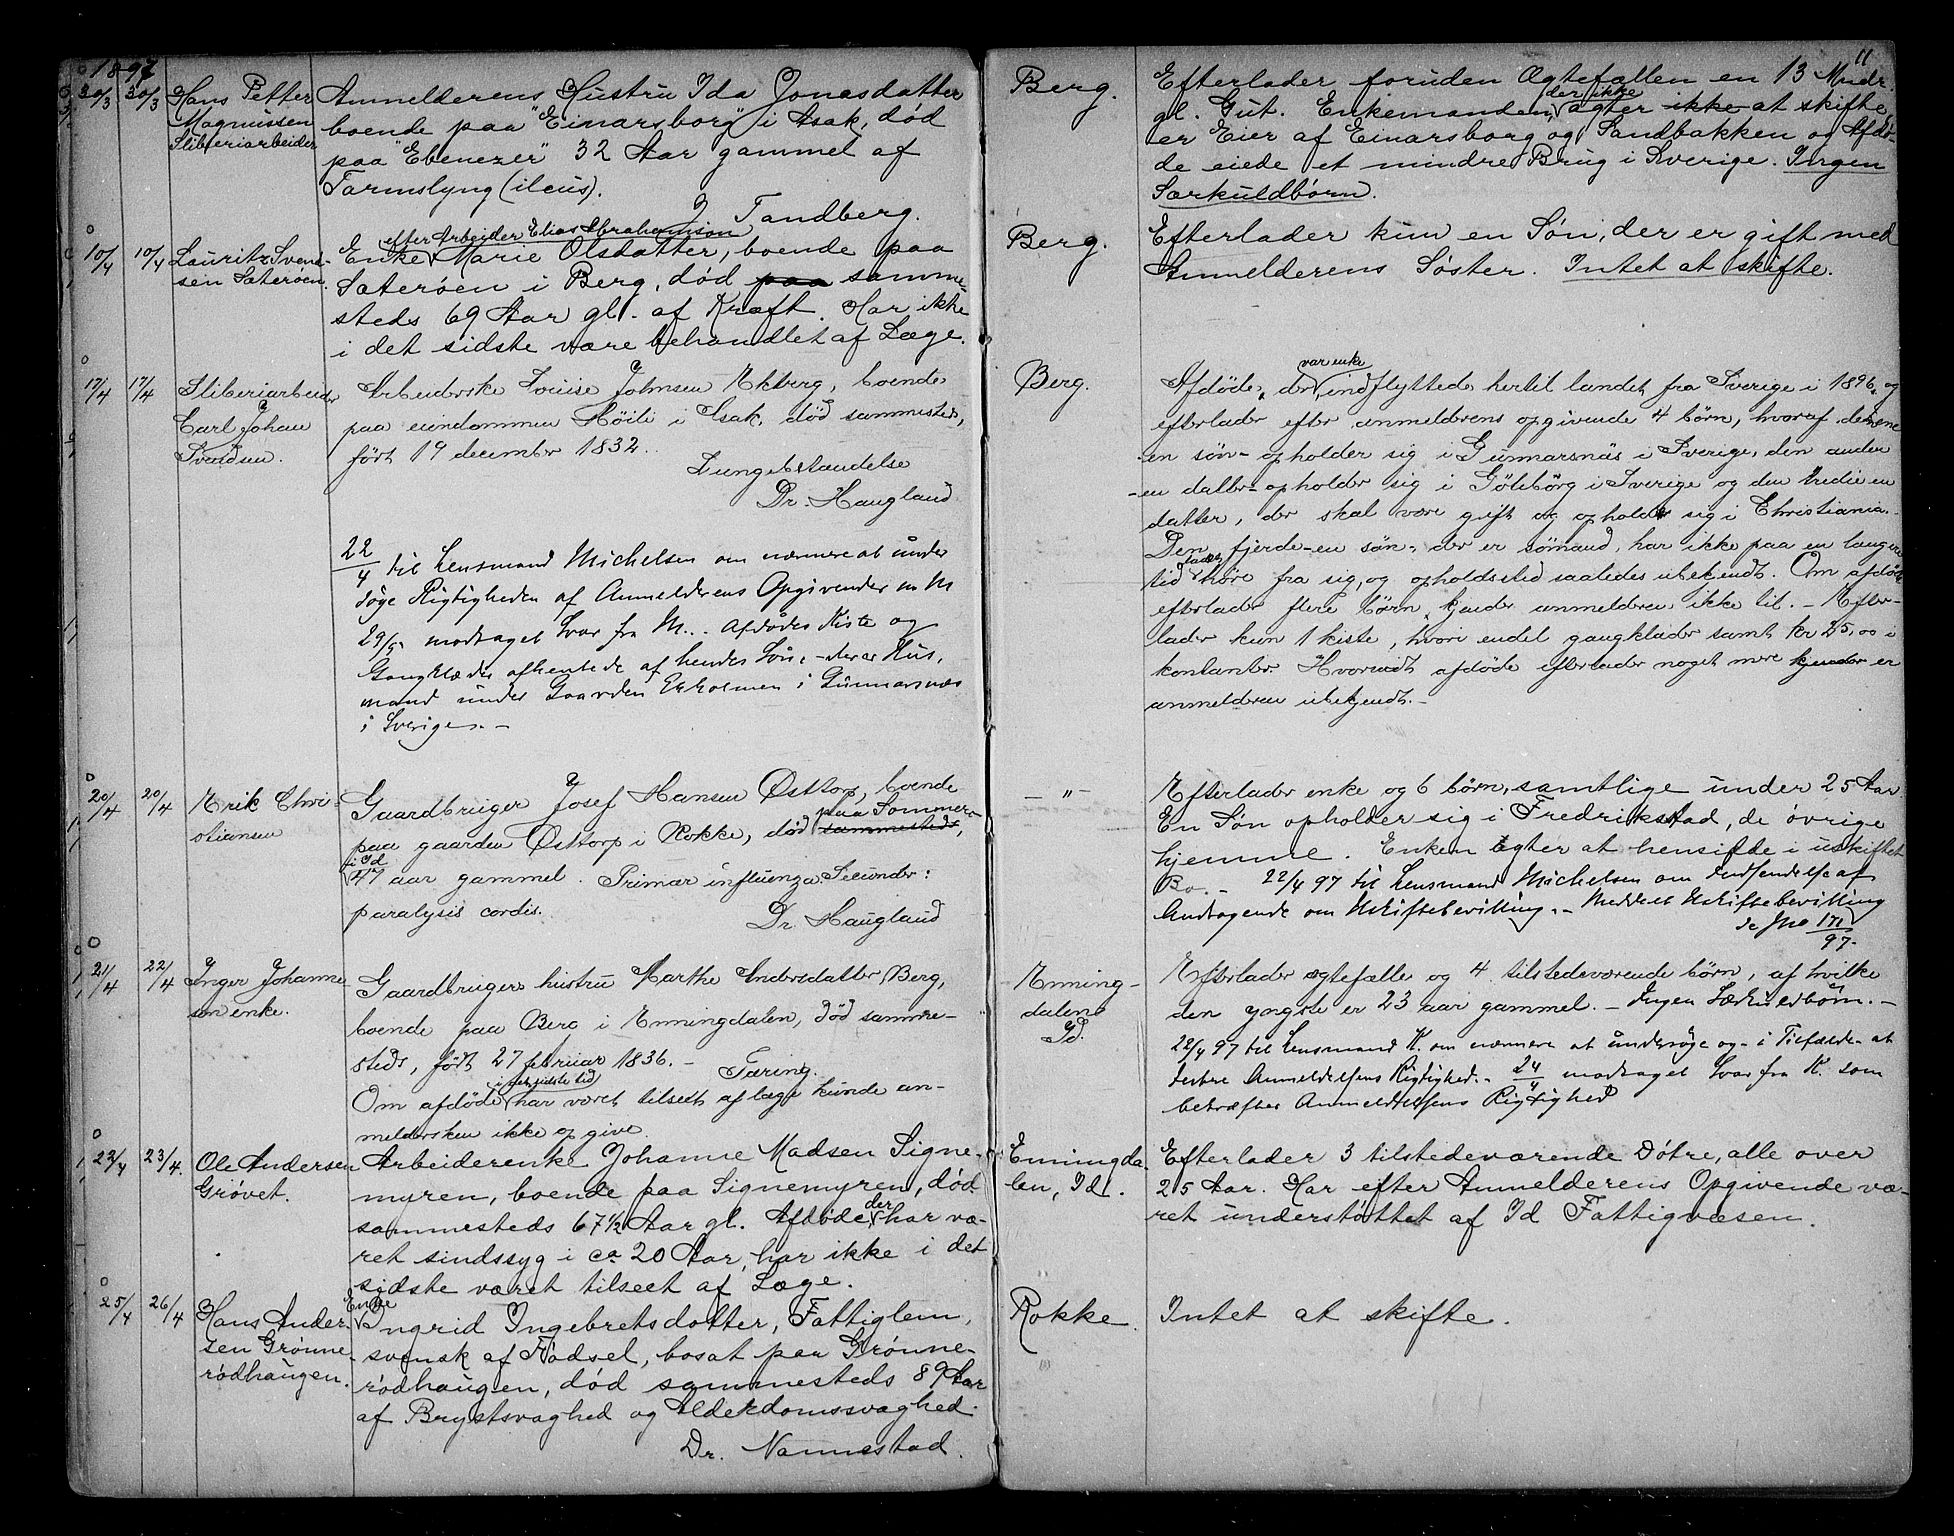 1897
11
30/3 30/3 Hans Petter
Magnussen
Sliberiarbeider
Anmelderens Hustru Ida Jonasdatter
boende paa "Einarsborg" i Asak, død
paa "Ebenezer" 32 Aar gammel af
Tarmslyng (ileus).
J Tandberg.
Berg.
Efterlader foruden Ægtefællen en 13 Mndr.
gl. Gut. Enkemanden, der ikke agter ikke at skifte,
er Eier af Einarsborg og Sandbakken og Afdø-
de eiede et mindre Brug i Sverige. Ingen
Særkuldbørn.
10/4 10/4 Lauritz Svend-
sen Sæterøen.
efter Arbeider Elias Abrahamson
Enke Marie Olsdatter, boende paa
Sæterøen i Berg, død paa samme-
steds 69 Aar gl. af Kræft. Har ikke
i det sidste være behandlet af Læge.
Berg.
Efterlader kun en Søn, der er gift med
Anmelderens Søster. Intet at skifte.
17/4 17/4 Sliberiarbeider
Carl Johan
Svendsen.
Arbeiderske Lovise Johnsen Ekberg, boende
paa eiendommen Høili i Asak, død sammesteds,
født 19 december 1832.
Lungebetændelse
Dr. Haugland
22/4 til Lensmand Michelsen om nærmere at under
søge Rigtigheden af Anmelderens Opgivender m M
29/5 modtaget Svar fra M... Afdødes Kiste og
Gangklæder afhentede af hendes Søn, - der er Hus,
mand under Gaarden Ekholmen i Gunnarsnæs
i Sverige. -
Berg.
Afdøde, der var enke indflyttede hertil landet fra Sverige i 1896, og
efterlader efter anmelderens opgivende 4 børn, hvoraf den ene
-en søn- opholder sig i Gunnarsnäs i Sverige, den anden
-en datter- opholder sig i Göteborg i Sverige og den tredie en
datter, der skal være gift og opholder sig i Christiania.
Den fjerde -en søn- der er sømand, har ikke paa en længere
tid ladet høre fra sig, og opholdssted saaledes ubekjendt. Om afdøde
efterlader flere børn, kjender anmelderen ikke til. - Efter-
lader kun 1 kiste, hvori endel gangklæder samt kr 25,00 i
kontanter. Hvorvidt afdøde efterlader noget mere kjender er
anmelderen ubekjendt. -
20/4 20/4 Erik Chri-
stiansen
Gaardbruger Josef Hansen Østtorp, boende
paa gaarden Østtorp i Rokke, død paa Sommero sammesteds,
i Id
47 aar gammel. Primær influenza. Secundær:
paralysis cordis.
Dr. Haugland
- " -
Efterlader enke og 6 børn, samtlige under 25 Aar
En Søn opholder sig i Fredrikstad, de øvrige
hjemme. Enken agter at hensidde i uskiftet
Bo. - 22/4 97 til Lensmand Michelsen om Indsendelse af
Andragende om Uskiftebevilling. - Meddelt Uskiftebevilling
se Jno 171/97.
21/4 22/4 Inger Johanne
sen enke.
Gaardbrugers hustru Marthe Andersdatter Berg,
boende paa Berg i Enningdalen, død samme-
steds, født 27 februar 1836. - Tæring.
Om afdøde i den sidste tid har været tilseet af læge kunde an-
meldersken ikke opgive.
Enning-
dalen
Id.
Efterlader ægtefælle og 4 tilstedeværende børn, af hvilke
den yngste er 23 aar gammel. - Ingen Særkuldbørn. -
22/4 97 til Lensmand K. om nærmere at undersøge og - i Tilfælde - at
testere Anmeldelsens Rigtighed. - 24/4 modtaget Svar fra K. som
bekræfter Anmeldelsens Rigtighed
22/4 23/4. Ole Andersen
Grøvet.
Arbeiderenke Johanne Madsen Signe-
myren, boende paa Signemyren, død
sammesteds 67½ Aar gl. Afdøde der har væ-
ret sindssyg i ca 20 Aar, har ikke i det
sidste været tilseet af Læge.
Enningda-
len, Id.
Efterlader 3 tilstedeværende Døtre, alle over
25 Aar. Har efter Anmelderens Opgivende væ-
ret understøttet af Id Fattigvæsen.
25/4 26/4 Hans Ander-
sen Grønne-
rødhaugen.
Enke
Ingrid Ingebretsdatter, Fattiglem,
svensk af Fødsel, bosat paa Grønne-
rødhaugen, død sammesteds 89 Aar
af Brystsvaghed og Alderdomssvaghed.
Dr. Nannestad.
Rokke.
Intet at skifte.